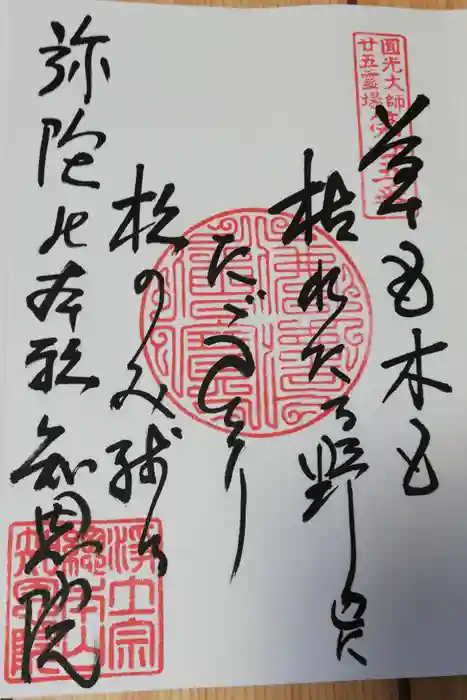 圓光大師
廿五靈場
草も木も
枯れたる野辺に
たゞひとり
松のみ残る
弥陀の本願 知恩院
浄土宗
總本山
知恩院